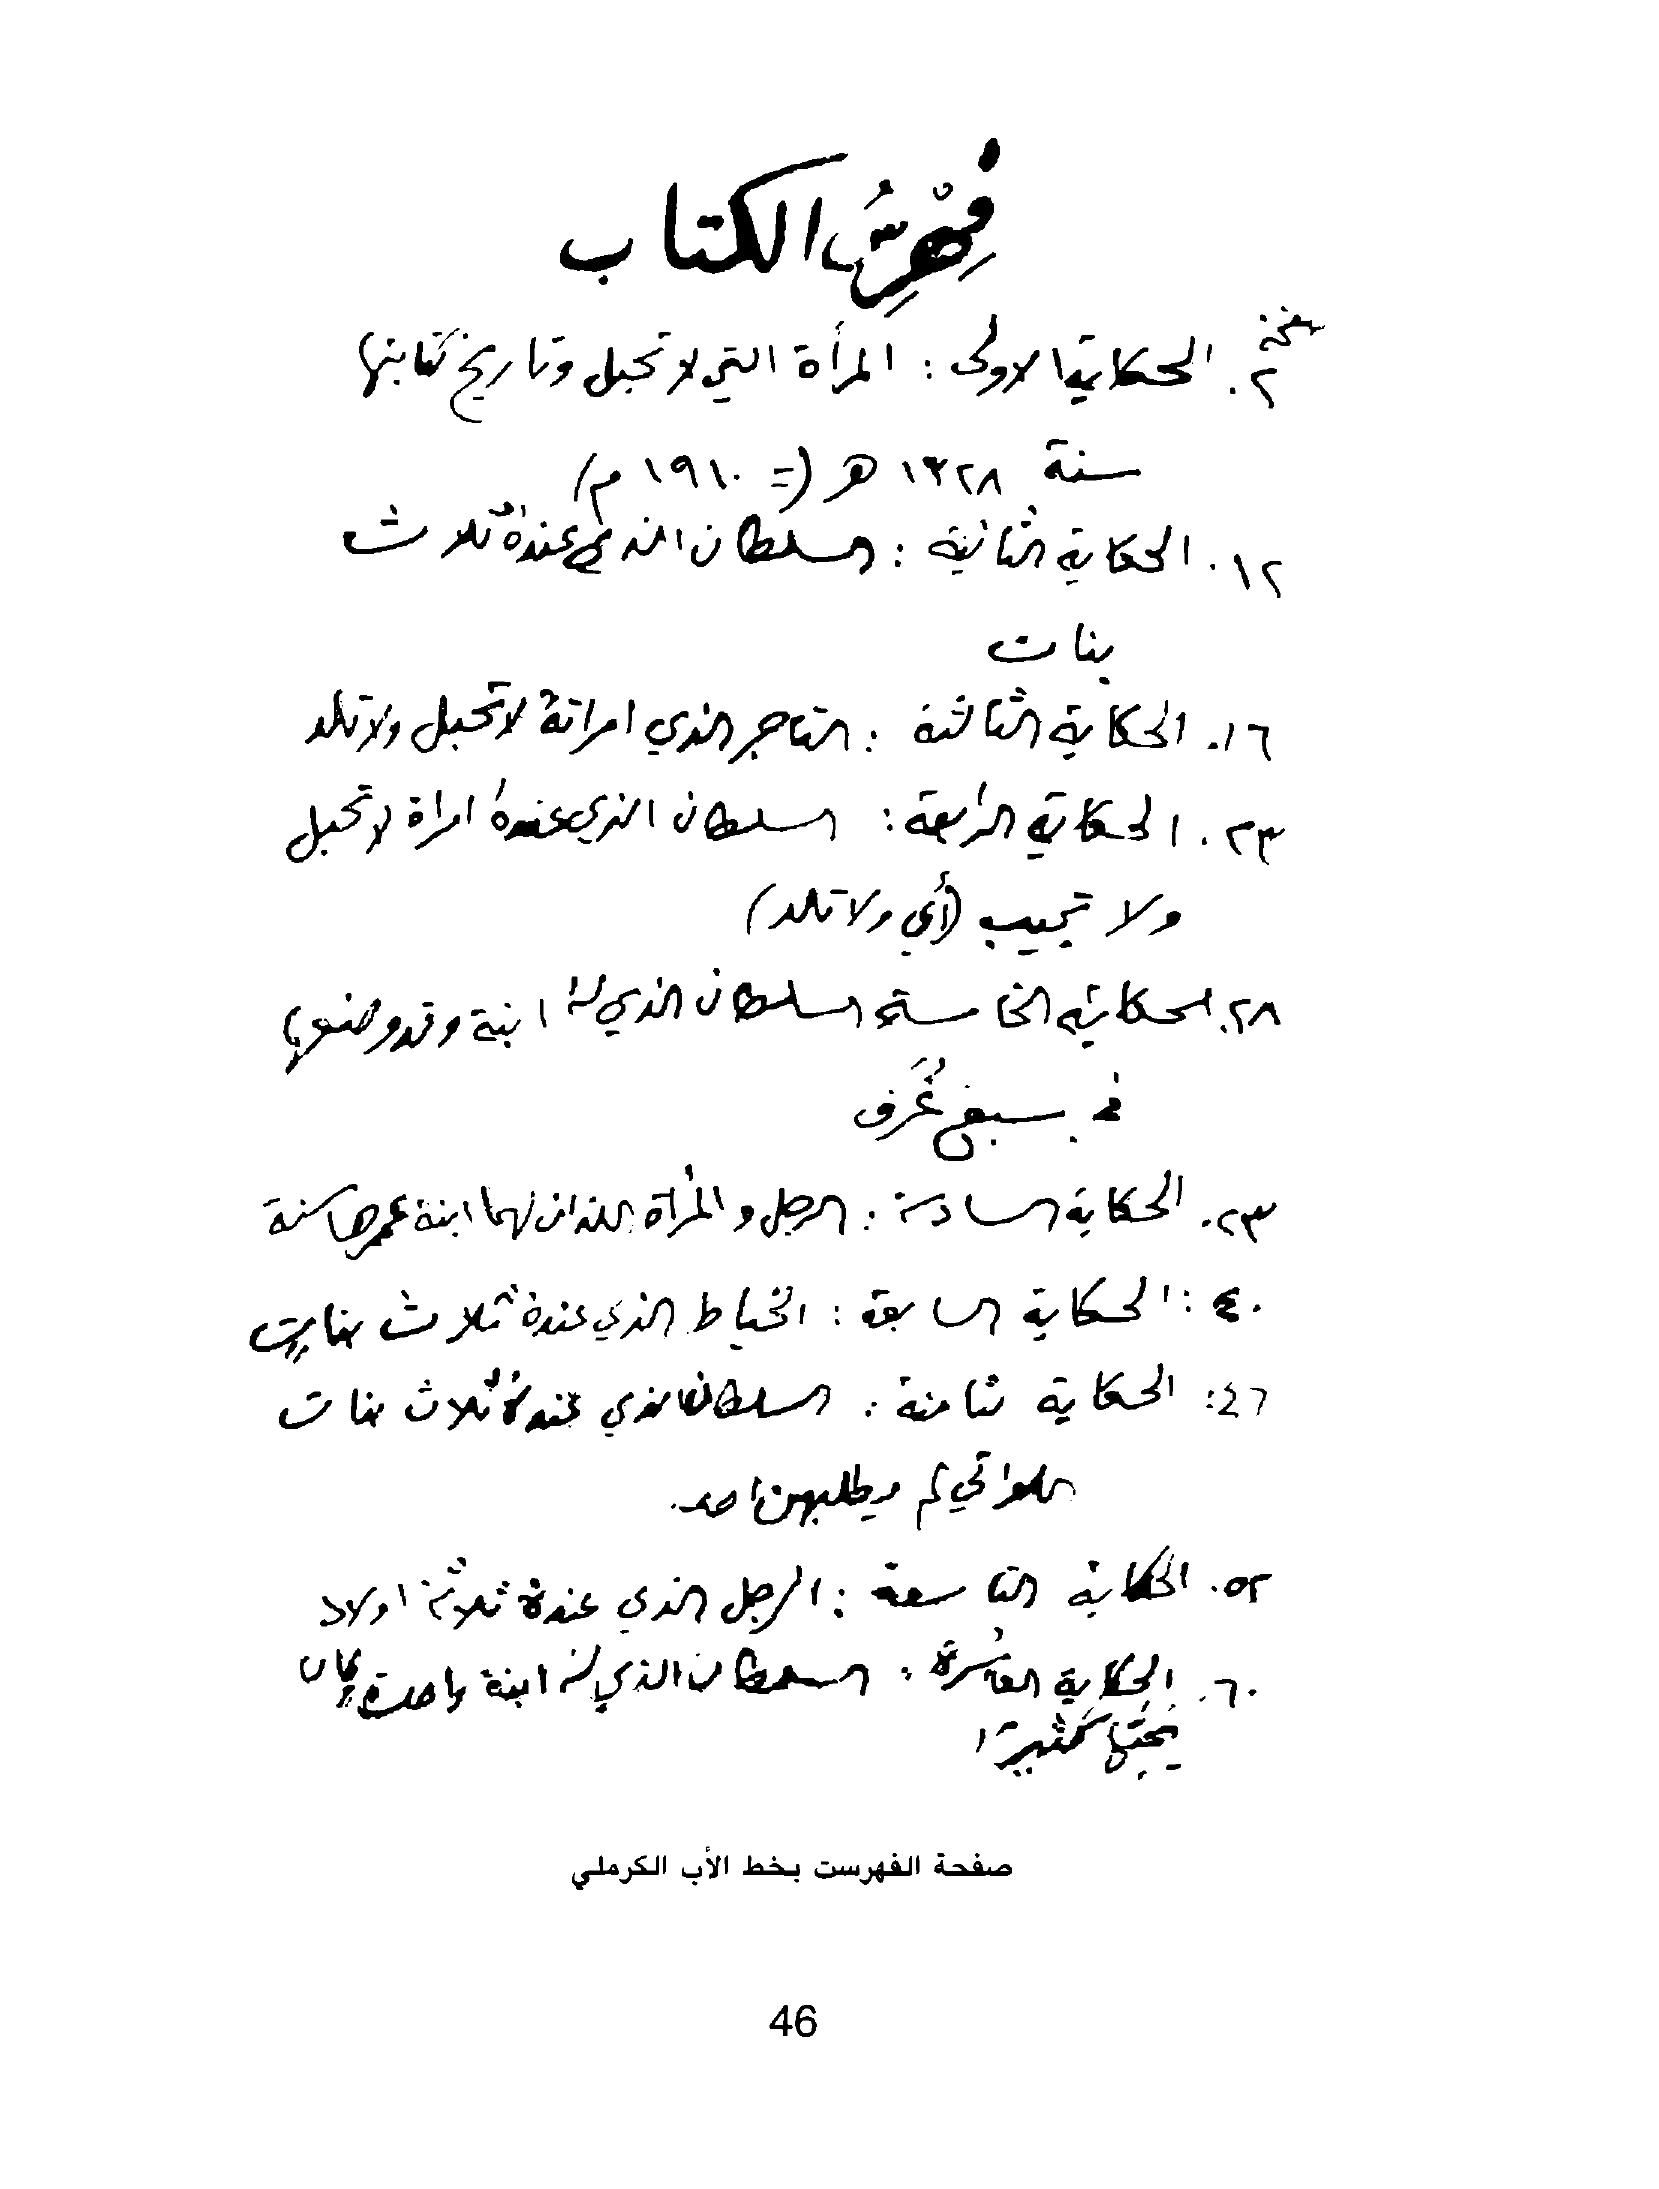 فِهْرِسُ الكتاب
صفحة
٢. الحكاية الاولى : المرأة التي لا تحبل وتاريخ كتابتها
سنة ١٣٢٨ هـ (= ١٩١٠ م)
١٢. الحكاية الثانية : السلطان الذي عندهُ ثلاث
بنات
١٦. الحكاية الثالثة : التاجر الذي امراتهُ لا تحبل ولا تلد
٢٣. الحكاية الرابعة : السلطان الذي عندهُ امراة لا تحبل
ولا تجيب (أي ولا تلد)
٢٨. الحكاية الخامسة السلطان الذي لهُ ابنة وقد وضعها
في سبع غُرَف
٢٣. الحكاية السادسة : الرجل والمرأة اللذان لهما ابنة عمرها سنة
٤٠: الحكاية السابعة : الخياط الذي عندهُ ثلاث بناتٍ
٤٦: الحكاية ثامنة : السلطان الذي عندهُ ثلاث بنات
اللواتي لم يطلبهن احد.
٥٢. الحكاية التاسعة : الرجل الذي عندهُ ثلاثة اولاد
٦٠. الحكاية العاشرة : السلطان الذي لهُ ابنة واحدة وكان
يُحِبُّها كَثيرًا
صفحة الفهرست بخط الأب الكرملي
46